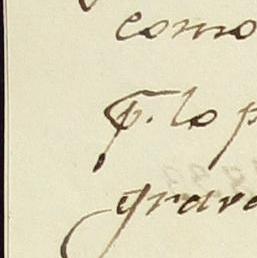 como
p. lo p
grava